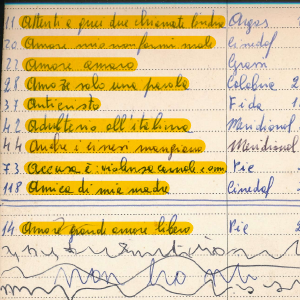 11 Attenti a quei due chiamate Londra Argos
20 Amore mio non farmi male Cinedaf
22 Amore amaro Grassi
28 Amore solo una parola Colobrie 2
37 Anticristo Fida 1
42 Adulterio all'italiana Meridional
44 Andre i cineri mangiano Meridional
73 Accusa è: violenza carnale e om Pie
118 Amica di mia madre Cinedaf
14 Amore grande amore libero Pie 2
non ho